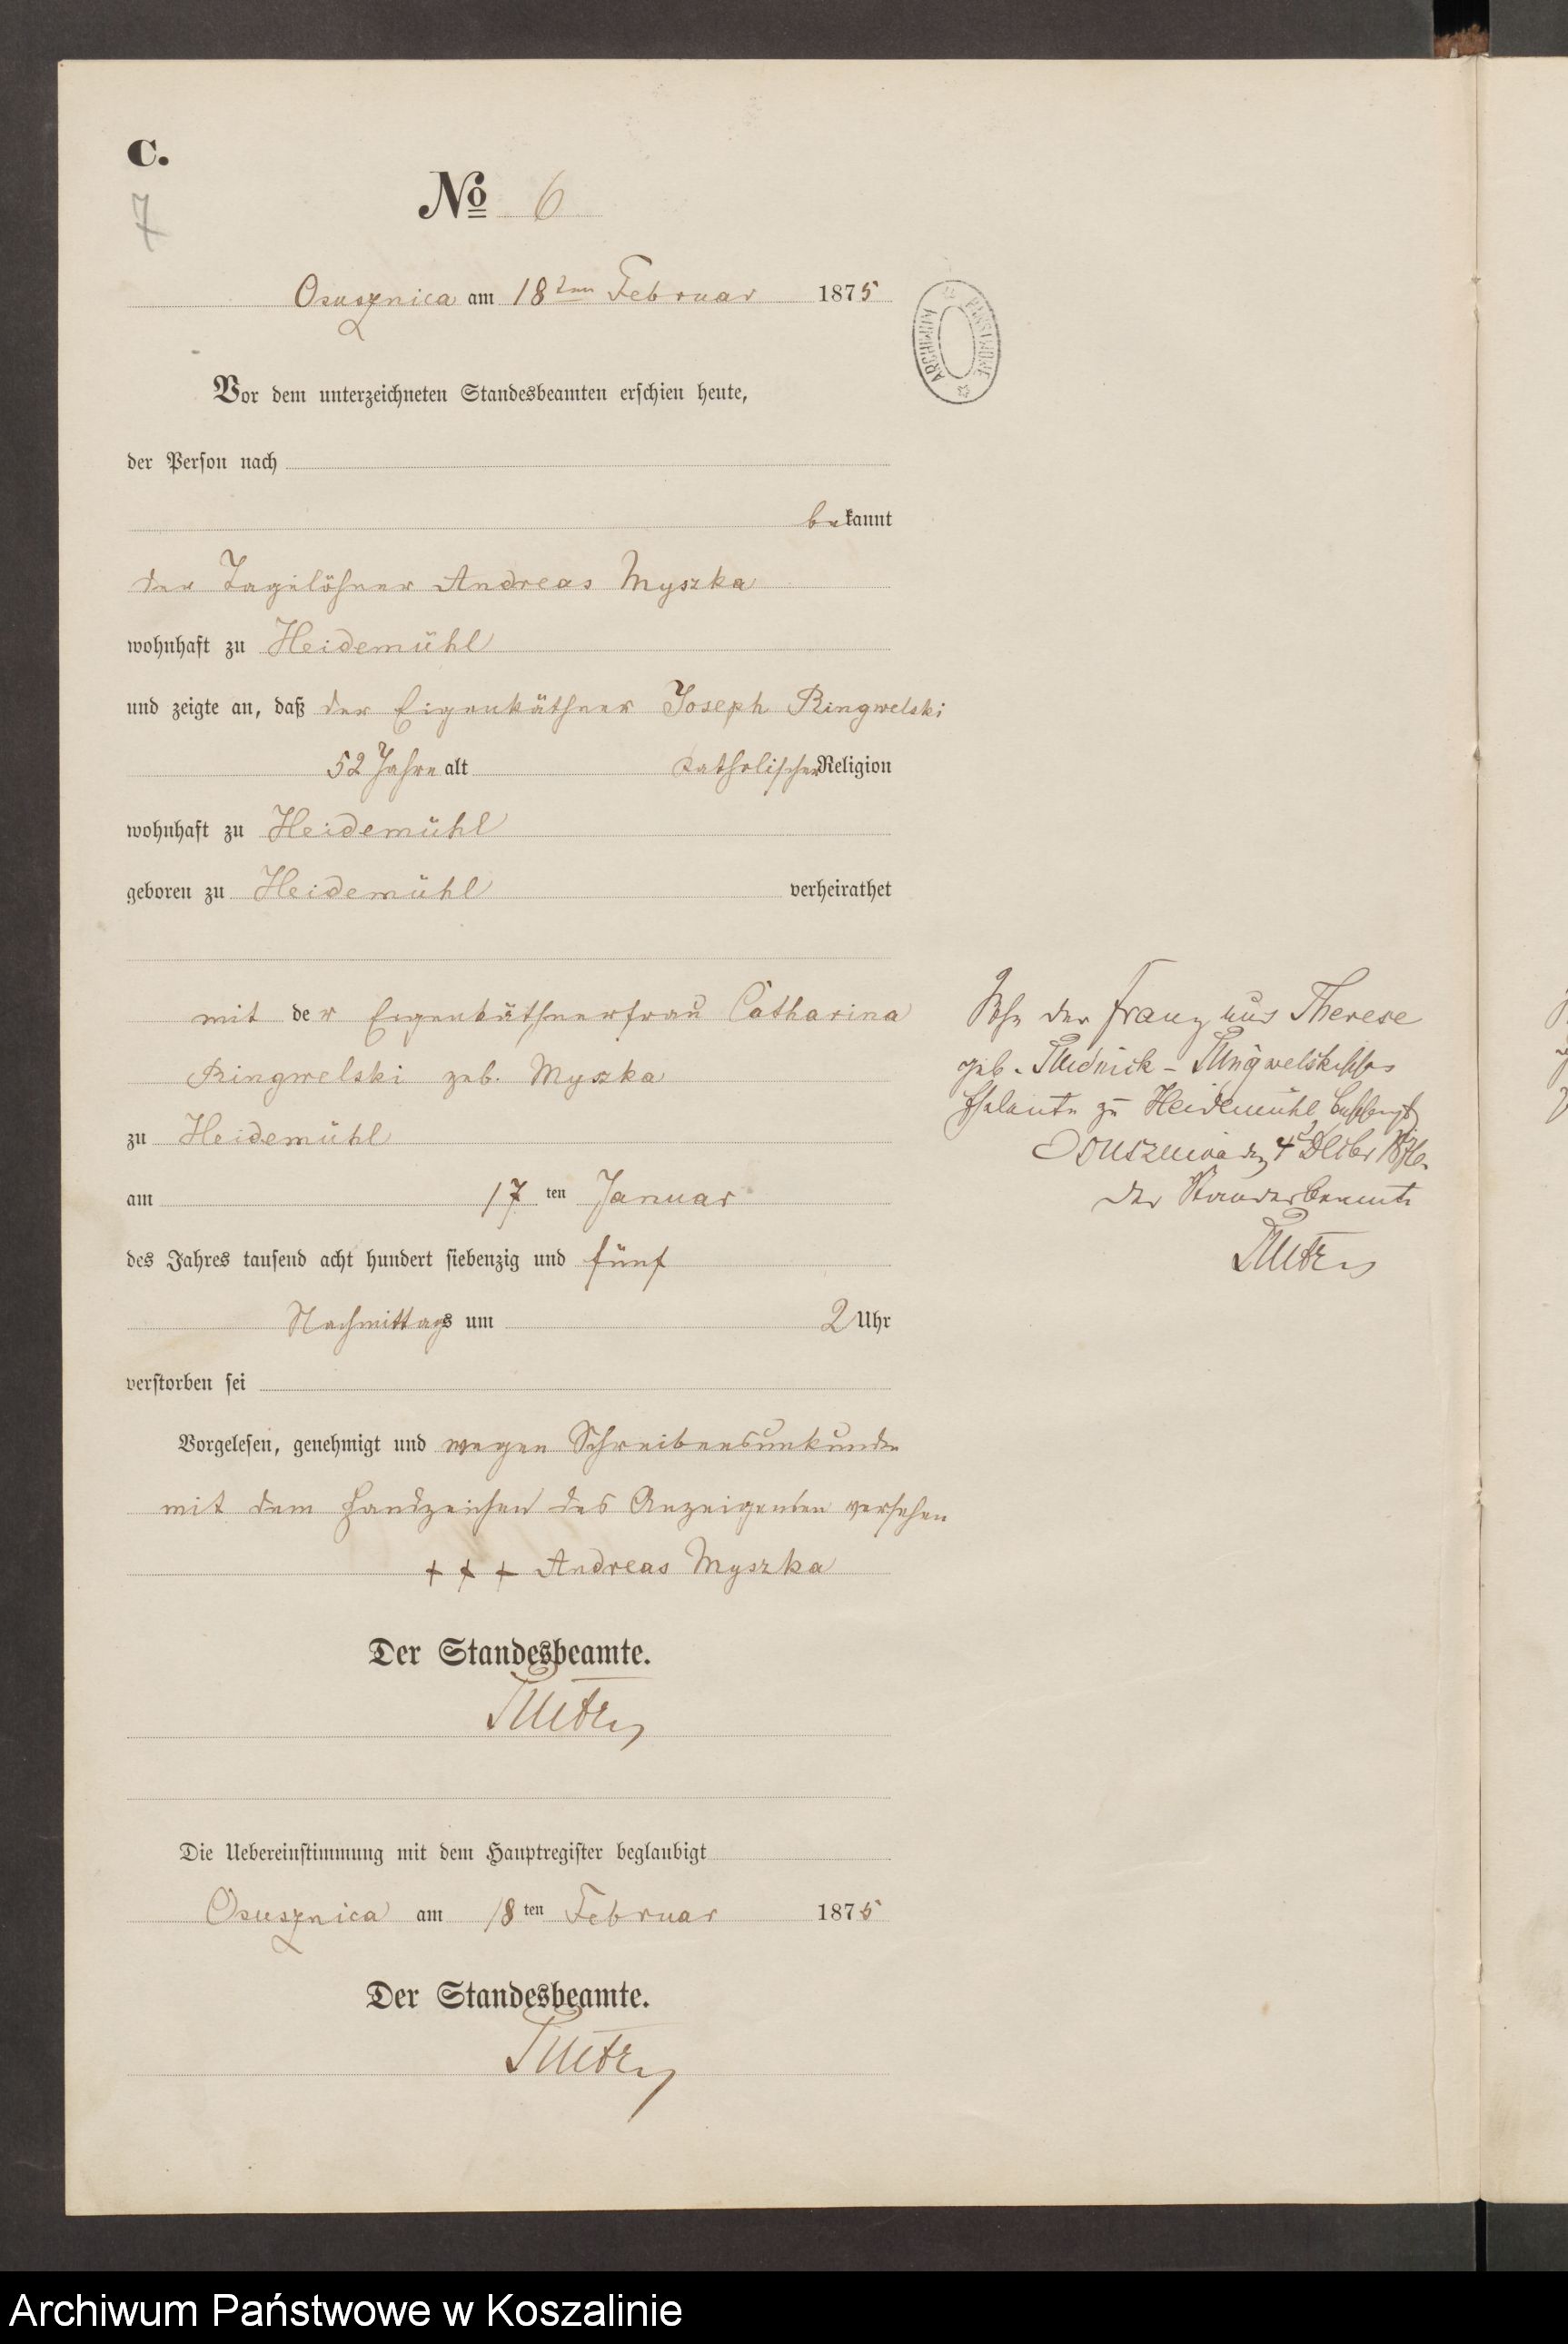 C.
7
No 6
Osusznica am 18ten Februar 1875
ARCHIWUM PAŃSTWOWE
Vor dem unterzeichneten Standesbeamten erschien heute,
der Person nach
bekannt
der Tagelöhner Andreas Myszka
wohnhaft zu Heidemühl
und zeigte an, daß der Eigenkäthner Joseph Ringwelski
52 Jahre alt katholischer Religion
wohnhaft zu Heidemühl
geboren zu Heidemühl verheirathet
mit der Eigenkäthnerfrau Catharina
Ringwelski geb. Myszka
zu Heidemühl
am 17ten Januar
des Jahres tausend acht hundert siebenzig und fünf
Nachmittags um 2 Uhr
verstorben sei
Vorgelesen, genehmigt und wegen Schreibensunkunde
mit dem Handzeichen des Anzeigenden versehen
+ + + Andreas Myszka
Der Standesbeamte.
Die Uebereinstimmung mit dem Hauptregister beglaubigt
Osusznica am 18ten Februar 1875
Der Standesbeamte.
Sohn der Franz und Therese
geb.
Eheleute zu Heidemühl
Osusznica den 4
der Standesbeamte
Archiwum Państwowe w Koszalinie